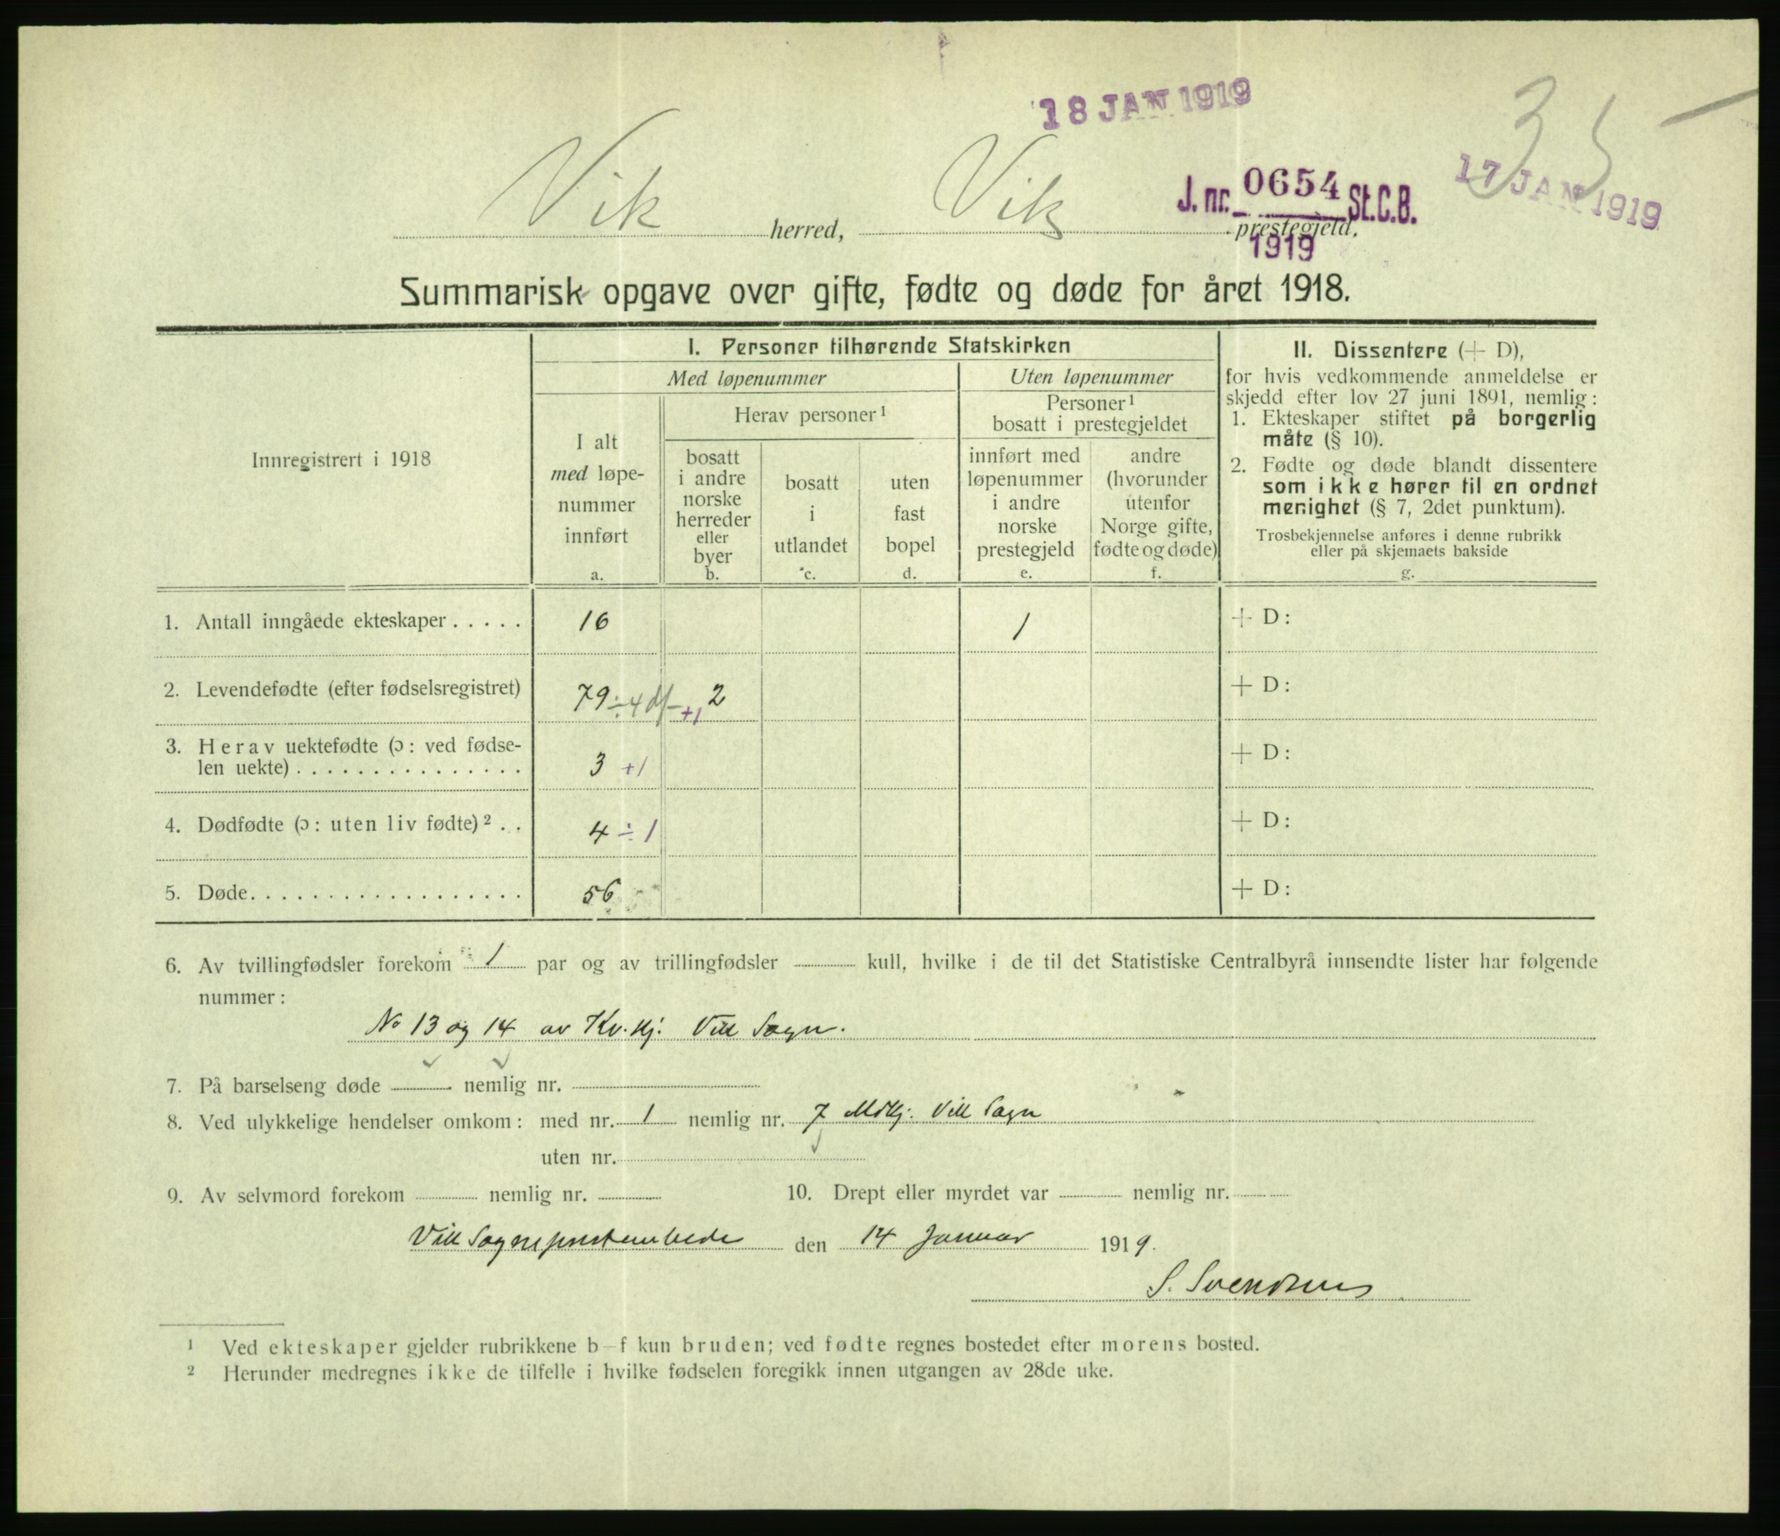 18 JAN 1919
35
17 JAN 1919
J. nr. 0654 St.C.B.
1919
Vik herred, Vik prestegjeld.
Summarisk opgave over gifte, fødte og døde for året 1918.
Innregistrert i 1918
I. Personer tilhørende Statskirken
Med løpenummer
Uten løpenummer
I alt
med løpe-
nummer
innført
a.
Herav personer¹
bosatt
i andre
norske
herreder
eller
byer
b.
bosatt
i
utlandet
c.
uten
fast
bopel
d.
Personer¹
bosatt i prestegjeldet
innført med
løpenummer
i andre
norske
prestegjeld
e.
andre
(hvorunder
utenfor
Norge gifte,
fødte og døde)
f.
II. Dissentere (+ D),
for hvis vedkommende anmeldelse er
skjedd efter lov 27 juni 1891, nemlig:
1. Ekteskaper stiftet på borgerlig
måte (§ 10).
2. Fødte og døde blandt dissentere
som ikke hører til en ordnet
menighet (§ 7, 2det punktum).
Trosbekjennelse anføres i denne rubrikk
eller på skjemaets bakside
g.
1. Antall inngåede ekteskaper . . . . . 16 1 + D:
2. Levendefødte (efter fødselsregistret) 79 ÷4 df +1 2 + D:
3. Herav uektefødte (ɔ: ved fødse-
len uekte) . . . . . . . . . . . . . . . 3 +1 + D:
4. Dødfødte (ɔ: uten liv fødte)² . . 4 ÷1 + D:
5. Døde. . . . . . . . . . . . . . . . . . 56 + D:
6. Av tvillingfødsler forekom 1 par og av trillingfødsler kull, hvilke i de til det Statistiske Centralbyrå innsendte lister har følgende
nummer:
No 13 og 14 av Kv.kj. Vik Sogn.
7. På barselseng døde nemlig nr.
8. Ved ulykkelige hendelser omkom: med nr. 1 nemlig nr. 7 Mdkj. Vik Sogn
uten nr.
9. Av selvmord forekom nemlig nr. 10. Drept eller myrdet var nemlig nr.
Vik Sogneprestembede den 14 Januar 1919.
S. Svendsen
¹ Ved ekteskaper gjelder rubrikkene b–f kun bruden; ved fødte regnes bostedet efter morens bosted.
² Herunder medregnes ikke de tilfelle i hvilke fødselen foregikk innen utgangen av 28de uke.